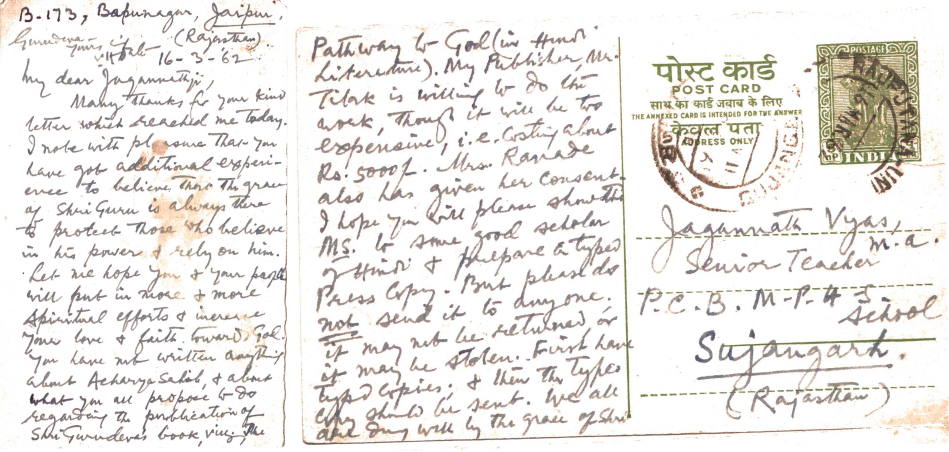 B-173, Bapunagar, Jaipur,
(Rajasthan)
Gurudeva
16-3-62
My dear Jagannathji,
Many thanks for your kind
letter which reached me today.
I note with pleasure that you
have got additional experi-
ence to believe that the grace
of Shri Guru is always there
to protect those who believe
in his power & rely on him.
Let me hope you & your people
will put in more & more
spiritual efforts & increase
your love & faith towards God.
You have not written anything
about Acharya Sahib, & about
what you all propose to do
regarding the publication of
Shri Gurudeva's book, viz, The
Pathway to God (in Hindi
Literature). My Publisher, Mr.
Tilak is willing to do the
work, though it will be too
expensive, i.e. costing about
Rs. 5000/-. Mrs. Ranade
also has given her consent.
I hope you will please show the
MS. to some good scholar
of Hindi & prepare a typed
Press Copy. But please do
not send it to anyone.
it may not be returned or
it may be stolen. First have
typed copies, & then the typed
copy should be sent. We all
are doing well by the grace of Shri
पोस्ट कार्ड
POST CARD
साथ का कार्ड जवाब के लिए
THE ANNEXED CARD IS INTENDED FOR THE ANSWER
केवल पता
ADDRESS ONLY
POSTAGE
INDIA
Jagannath Vyas,
M.A.
Senior Teacher
P.C.B. M-P-H S.
School
Sujangarh.
(Rajasthan)